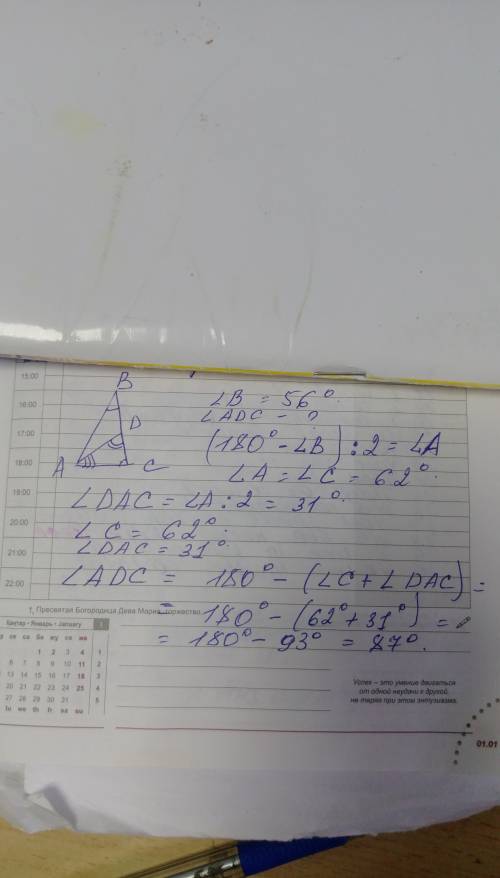 15:00
16:00
17:00
18:00
19:00
20:00
21:00
22:00
B
D
A
C
∠B = 56°.
∠ADC = ?
(180° - ∠B) : 2 = ∠A
∠A = ∠C = 62°.
∠DAC = ∠A : 2 = 31°.
∠C = 62°.
∠DAC = 31°.
∠ADC = 180° - (∠C + ∠DAC) =
= 180° - (62° + 31°) =
= 180° - 93° = 87°.
1, Пресвятая Богородица Дева Мария, торжество
Қаңтар • Январь • January 1
ср се са бе жу се же
1 2 3 4 1
6 7 8 9 10 11 2
13 14 15 16 17 18 3
20 21 22 23 24 25 4
27 28 29 30 31 5
tu we th fr sa su
Успех – это умение двигаться
от одной неудачи к другой,
не теряя при этом энтузиазма.
01.01